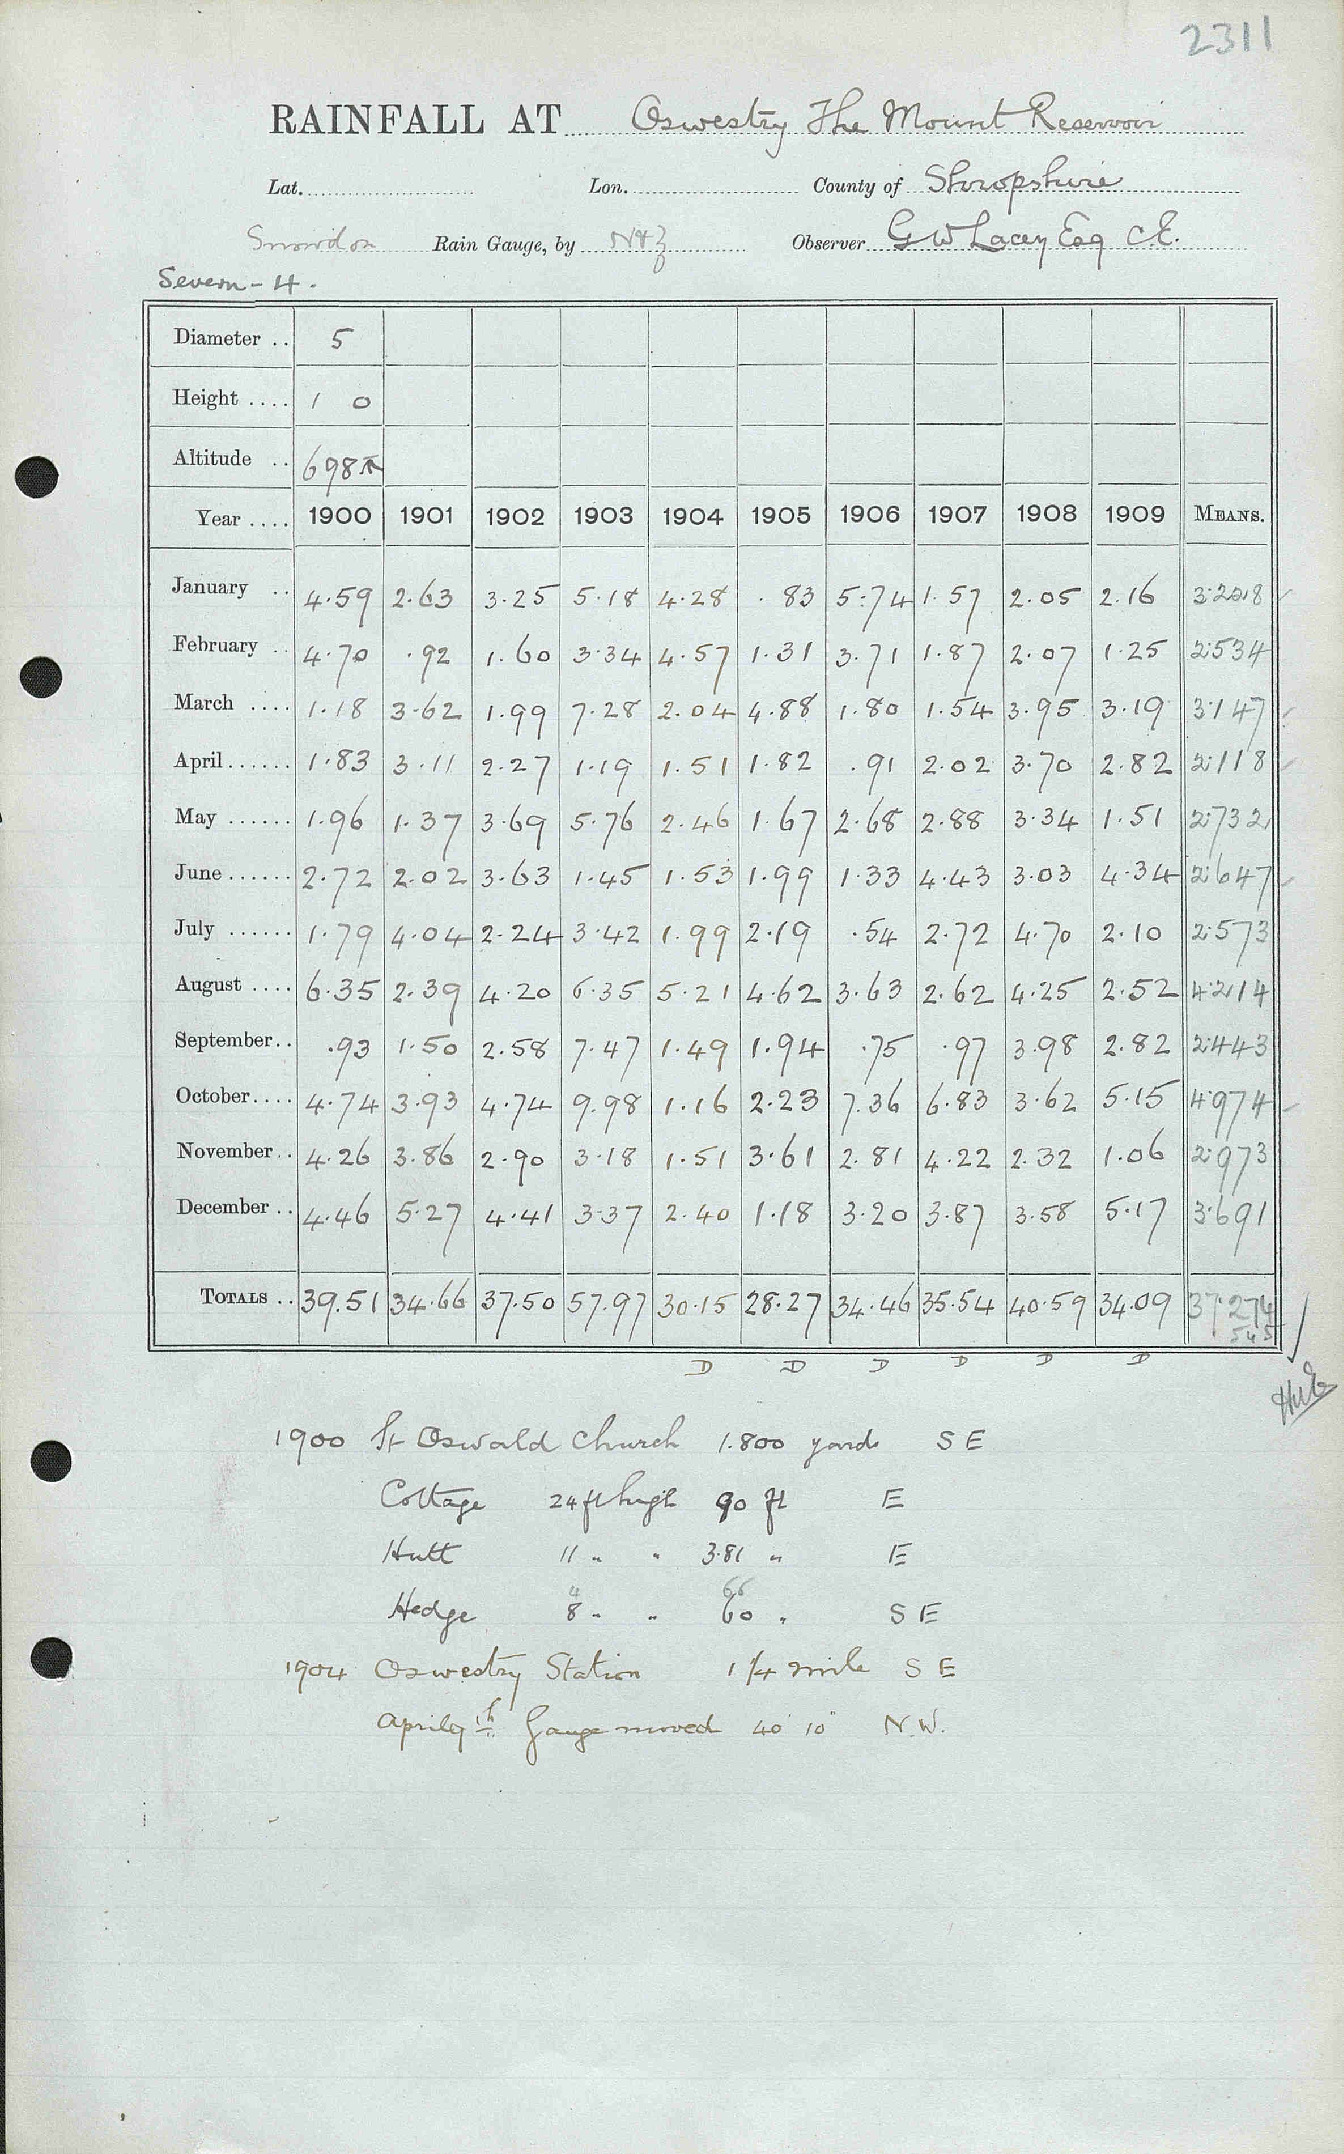 2311
RAINFALL AT Oswestry The Mount Reservoir
Lat. Lon. County of Shropshire
Snowdon Rain Gauge, by N & Z Observer G W Lacey Esq C.E.
Severn - 4.
Diameter .. 5
Height .... 1 0
Altitude .. 698
Year .... 1900 1901 1902 1903 1904 1905 1906 1907 1908 1909 MEANS.
January .. 4.59 2.63 3.25 5.18 4.28 .83 5.74 1.57 2.05 2.16 3.228
February .. 4.70 .92 1.60 3.34 4.57 1.31 3.71 1.87 2.07 1.25 2.534
March .... 1.18 3.62 1.99 7.28 2.04 4.88 1.80 1.54 3.95 3.19 3.147
April ...... 1.83 3.11 2.27 1.19 1.51 1.82 .91 2.02 3.70 2.82 2.118
May ...... 1.96 1.37 3.69 5.76 2.46 1.67 2.68 2.88 3.34 1.51 2.732
June ...... 2.72 2.02 3.63 1.45 1.53 1.99 1.33 4.43 3.03 4.34 2.647
July ...... 1.79 4.04 2.24 3.42 1.99 2.19 .54 2.72 4.70 2.10 2.573
August .... 6.35 2.39 4.20 6.35 5.21 4.62 3.63 2.62 4.25 2.52 4.214
September .. .93 1.50 2.58 7.47 1.49 1.94 .75 .97 3.98 2.82 2.443
October .... 4.74 3.93 4.74 9.98 1.16 2.23 7.36 6.83 3.62 5.15 4.974
November .. 4.26 3.86 2.90 3.18 1.51 3.61 2.81 4.22 2.32 1.06 2.973
December .. 4.46 5.27 4.41 3.37 2.40 1.18 3.20 3.87 3.58 5.17 3.691
TOTALS .. 39.51 34.66 37.50 57.97 30.15 28.27 34.46 35.54 40.59 34.09 37.274
545
D D D D D D
1900 St Oswald Church 1.800 yards S E
Cottage 24 ft high 90 ft E
Hutt 11 " " 3.81 " E
4 66
Hedge 8 " " 60 " S E
1904 Oswestry Station 1 1/4 mile S E
April 9th Gauge moved 40' 10" N.W.